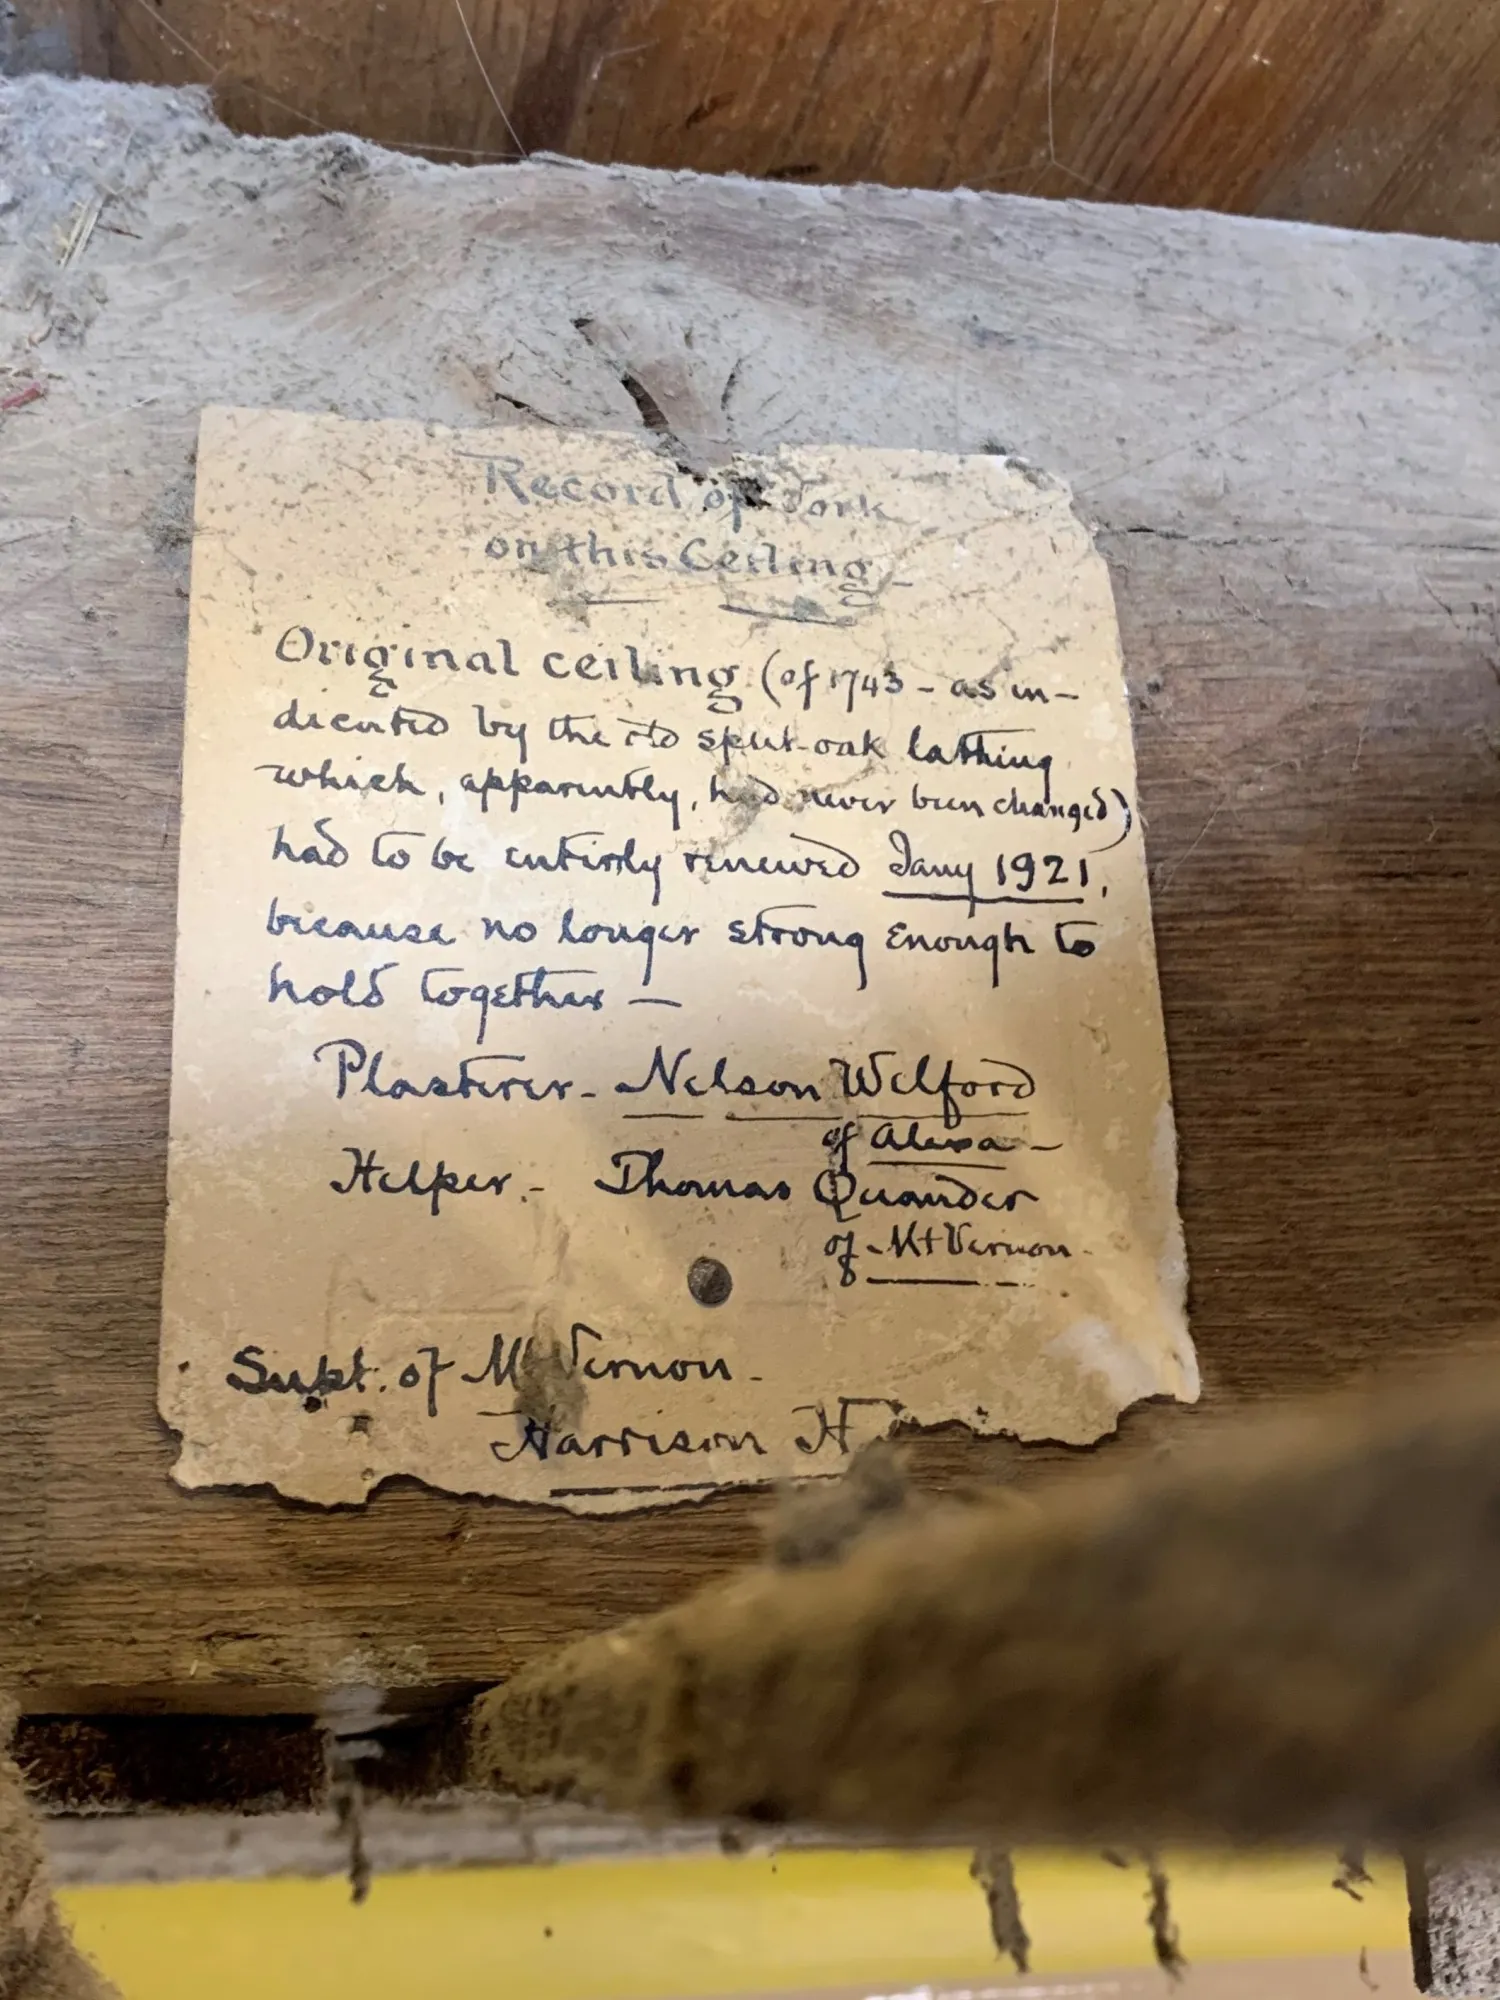 Record of Work
on this Ceiling -
Original ceiling (of 1743 - as in-
dicated by the old split-oak lathing
which, apparently, had never been changed)
had to be entirely renewed Jany 1921,
because no longer strong enough to
hold together —
Plasterer - Nelson Welford
of Alexa -
Helper - Thomas Quander
of Mt Vernon -
Supt. of Mt Vernon -
Harrison H